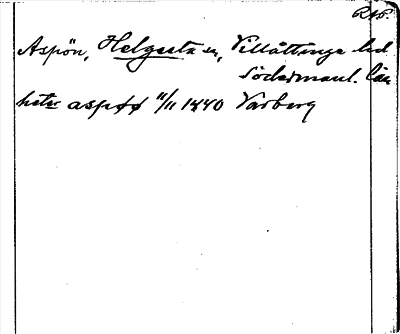 R N b.
Aspön, Helgesta sn, Villåttinge hd
Södermanl. län
heter aspøø 11/11 1440 Varberg